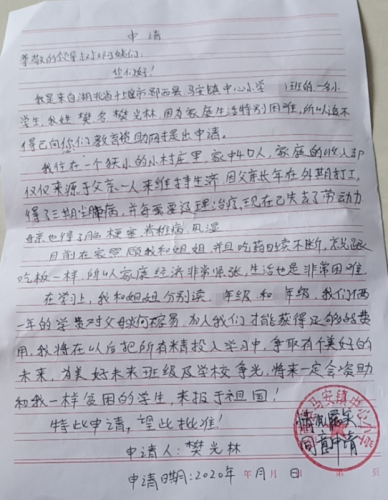 申请
尊敬的领导
您们好！
我是来自湖北省十堰市郧西县马安镇中心小学 班的一名小
学生，我姓樊名樊光林，因为家庭生活特别困难，所以迫不
得已向你们教育救助网提出申请。
我住在一个狭小的小村庄里，家中4口人，家庭的收入都
仅仅来源于父亲一人来维持生活，因父亲长年在外期打工，
得了三期尘肺病，并每要要治理治疗，现在已失去了劳动力
母亲也得了脑梗塞，脊椎病，风湿
目前在家照顾我和姐姐，并且吃药时续不断，就像
吃板一样，所以家庭经济非常紧张，生活也是非常困难
在学习上，我和姐姐分别读 年级和 年级，我们俩
一年的学费对父母
用，我将在以后把所有精投入学习中，争取有个美好的
未来，为美好未来班级及学校争光，将来一定会资助
和我一样贫困的学生，来报于祖国！
特此申请，望此批准！
申请人：樊光林
申请日期：2020年 月 日
情况属实
同意申请